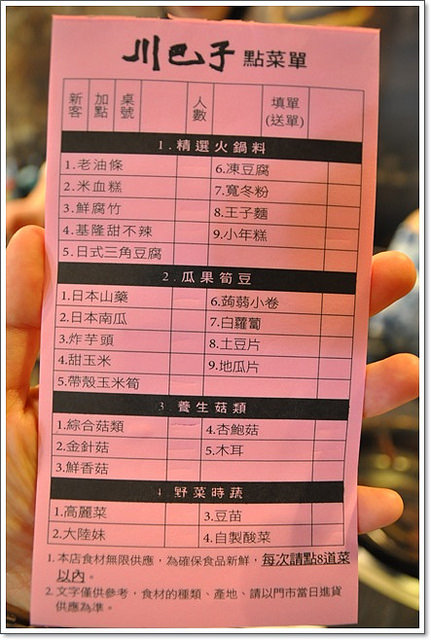 川巴子 點菜單
新客 加點 桌號 人數 填單(送單)
1.精選火鍋料
1.老油條 6.凍豆腐
2.米血糕 7.寬冬粉
3.鮮腐竹 8.王子麵
4.基隆甜不辣 9.小年糕
5.日式三角豆腐
2.瓜果筍豆
1.日本山藥 6.蒟蒻小卷
2.日本南瓜 7.白蘿蔔
3.炸芋頭 8.土豆片
4.甜玉米 9.地瓜片
5.帶殼玉米筍
3.養生菇類
1.綜合菇類 4.杏鮑菇
2.金針菇 5.木耳
3.鮮香菇
4.野菜時蔬
1.高麗菜 3.豆苗
2.大陸妹 4.自製酸菜
1.本店食材無限供應，為確保食品新鮮，每次請點8道菜
以內。
2.文字僅供參考，食材的種類、產地、請以門市當日進貨
供應為準。